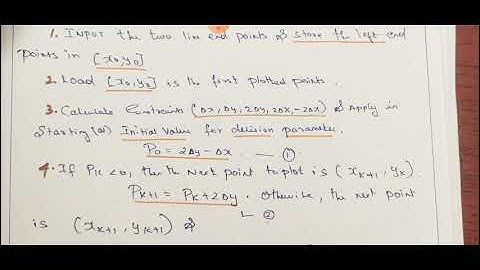 1. Input the two line end points & store the left end
points in (x0,y0)
2. Load (x0,y0) is the first plotted points.
3. Calculate Constraints (Δx, Δy, 2Δy, 2Δx, -2Δx) & Apply in
Starting (or) Initial Value for decision parameter.
P0 = 2Δy - Δx. — ①
4. If PK < 0, then the Next point to plot is (xK+1, yK).
PK+1 = PK + 2Δy. Otherwise, the next point
② 
is (xK+1, yK+1) &